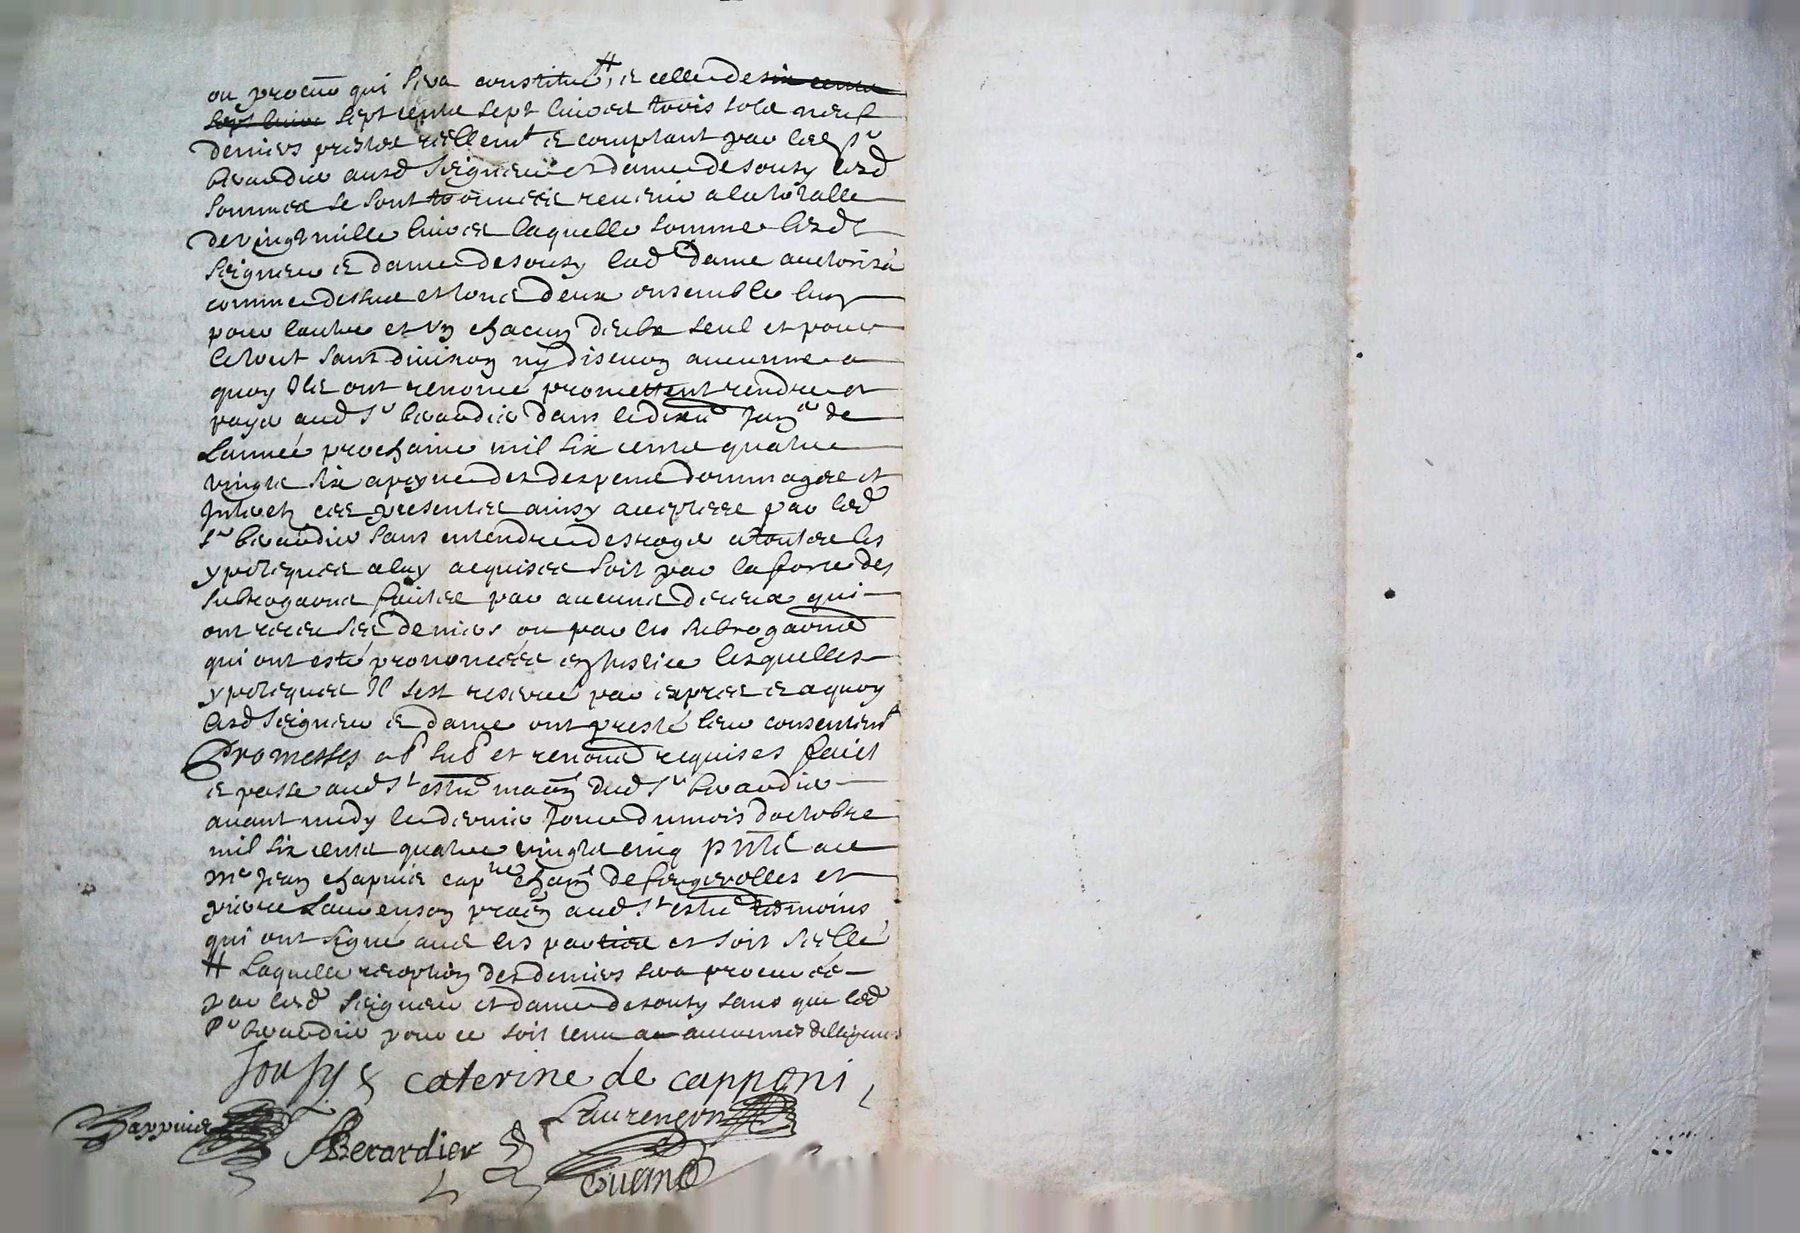 ou procur qui sera constitué # , et celle de six cents
sept livres sept cents sept livres trois sols neuf
deniers prestée reellemt et comptant par led sr
berardier ausd seigneur et dame de sousy lesd
sommes se sont trouvées revenir a la totalle
de vingt mille livres laquelle somme lesd
seigneur et dame de sousy lad dame authorisée
comme dessus et tous deux ensemble lung
pour lautre et un chacung deulx seul et pour
le tout sans division ny discution aucunne a
quoy Ils ont renoncé promettent rendre et
payer aud sr berardier dans le dixe Janer de
Lannée prochaine mil six cents quatre
vingts six a peyne des despens dommages et
Interetz ces presentes ainsy acceptées par led
sr berardier sans entendre desroger a toutes les
ypoteques a luy acquises soit par la force des
subrogaons faictes par aucuns diceux qui
ont receu ses deniers ou par les subrogaons
qui ont esté prononcées en Justice lesquelles
ypoteques Il sest reservé par exprès et a quoy
lesd seigneur et dame ont presté leur consentemt
Promesses ob sub et renond requises faict
et passé aud St estne maison dud sr berardier
avant midy le dernier Jour du mois doctobre
mil six cents quatre vingts cinq pnts a ce
Me Jean chapuis cap ne de feugerolles et
pierre Laurenson praen aud St estne tesmoins
qui ont signé avec les parties et soit scellé
# Laquelle reception des deniers sera procurée
par lesd seigneur et dame de sousy sans que led
sr berardier pour ce soit tenu a aucunnes dilligences
Sousy caterine de capponi
Chappuis Berardier Laurenson